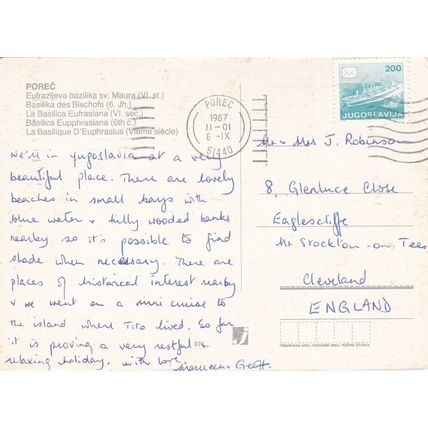 POREČ
Eufrazijeva bazilika sv. Maura (VI. st.)
Basilika des Bischofs (6. Jh.)
La Basilica Eufrasiana (VI. sec.)
Basilica Eupphrasiana (6th c.)
La Basilique D'Euphrasius (VIeme siècle)
POREČ
1987
11-01
6-IX
51440
200
JUGOSLAVIJA
We're in Yugoslavia at a very
beautiful place. There are lovely
beaches in small bays with
blue water & hilly wooded banks
nearby so it's possible to find
shade when necessary. There are
places of historical interest nearby
& we went on a mini cruise to
the island where Tito lived. So far
it is proving a very restful &
relaxing holiday. with love
Maureen Geoff.
Mr & Mrs J. Robinson
8, Glenluce Close
Eaglescliffe
Nr Stockton-on-Tees
Cleveland
ENGLAND